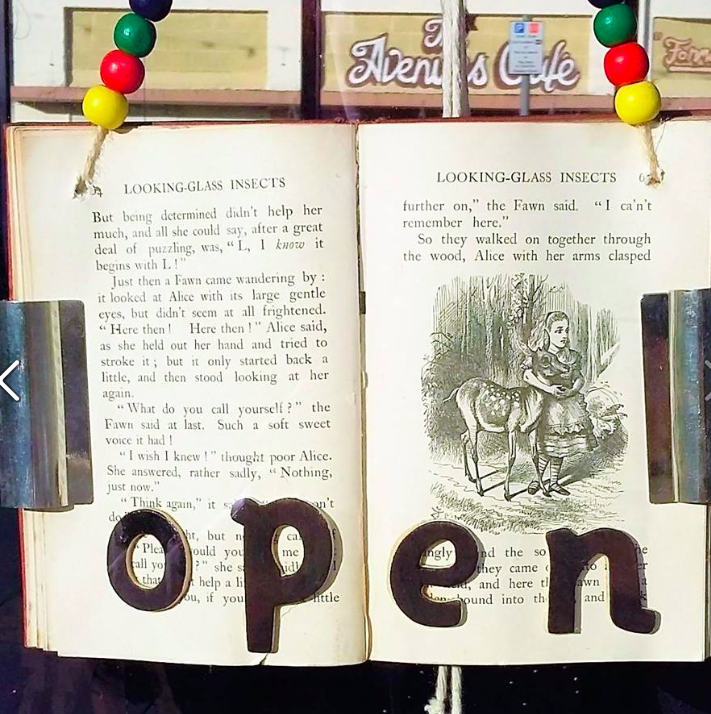 The
Avenues Café
LOOKING-GLASS INSECTS
But being determined didn't help her
much, and all she could say, after a great
deal of puzzling, was, “L, I know it
begins with L!”
Just then a Fawn came wandering by:
it looked at Alice with its large gentle
eyes, but didn't seem at all frightened.
“Here then! Here then!” Alice said,
as she held out her hand and tried to
stroke it; but it only started back a
little, and then stood looking at her
again.
“What do you call yourself?” the
Fawn said at last. Such a soft sweet
voice it had!
“I wish I knew!” thought poor Alice.
She answered, rather sadly, “Nothing,
just now.”
“Think again,” it
but
she
help a
if you little
LOOKING-GLASS INSECTS
further on,” the Fawn said. “I ca'n't
remember here.”
So they walked on together through
the wood, Alice with her arms clasped
the
they came
and here
bound into and
open